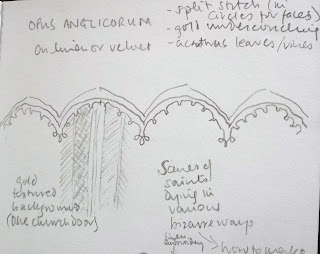 OPUS ANGLICORUM
on linen or velvet
- split stitch (in
circles for faces)
- gold undercouching
- acanthus leaves/vines
gold
textured
background
(like church door)
Scenes of
saints
dying in
various
bizarre ways
how to make